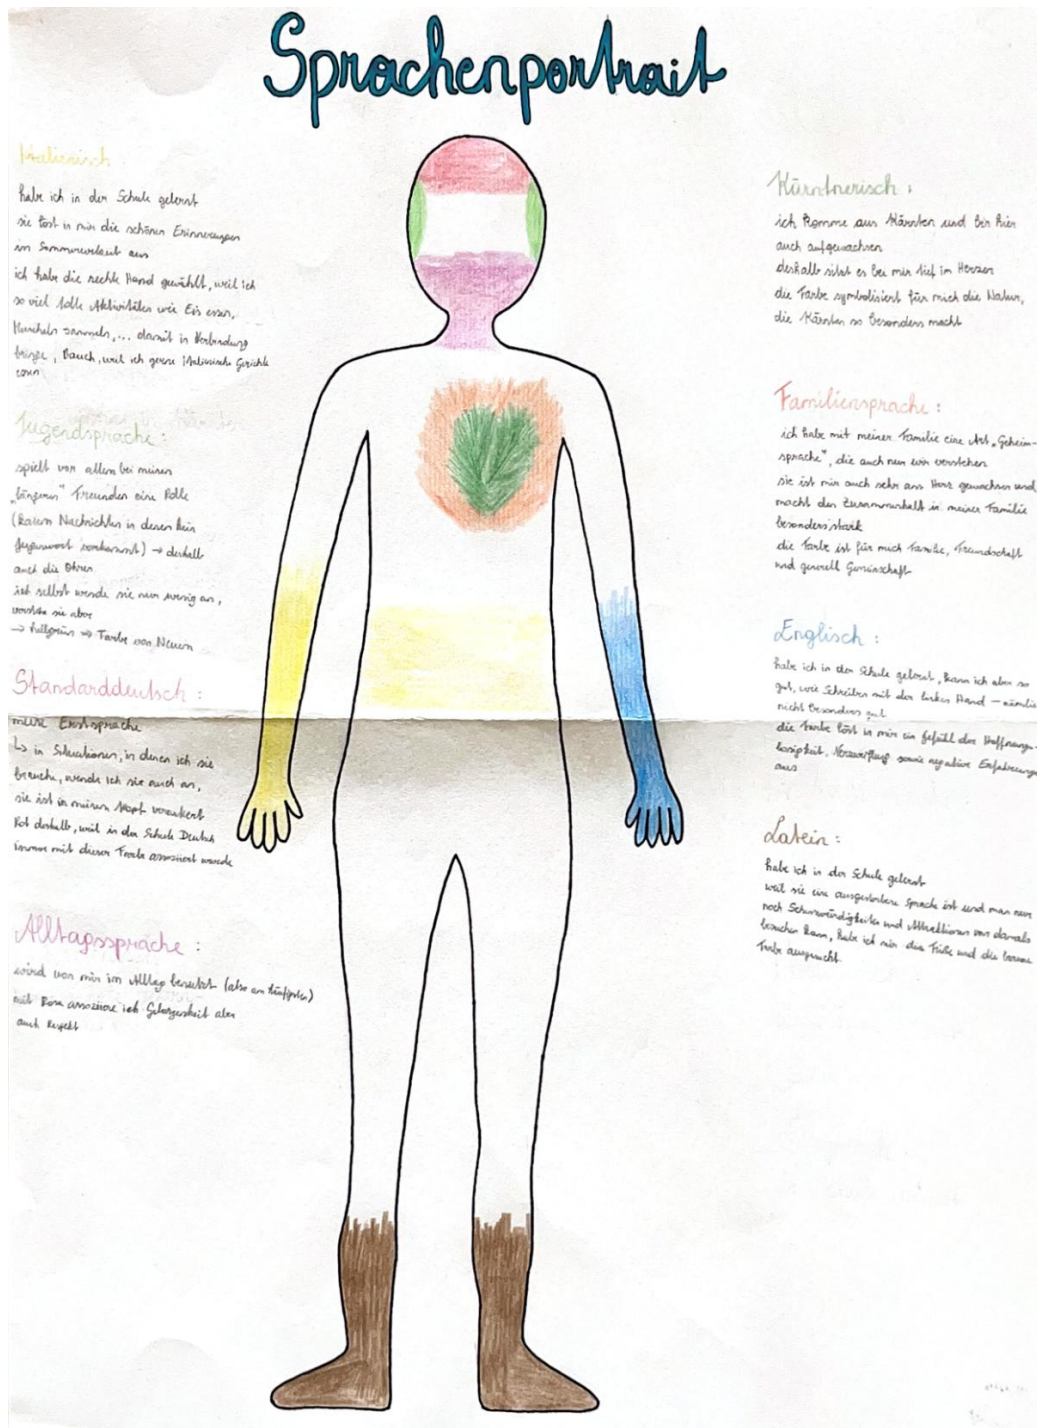 Sprachenportrait
Italienisch:
habe ich in der Schule gelernt
sie löst in mir die schönen Erinnerungen
im Sommerurlaub aus
ich habe die rechte Hand gewählt, weil ich
so viel tolle Aktivitäten wie Eis essen,
Muscheln sammeln,... damit in Verbindung
bringe, Bauch, weil ich gerne italienische Gerichte
esse
Jugendsprache:
spielt vor allem bei meinen
"jüngeren" Freunden eine Rolle
(kaum Nachrichten in denen kein
Jugendwort vorkommt) → deshalb
auch die Ohren
ich selbst wende sie nur wenig an,
verstehe sie aber
→ hellgrün ⇒ Farbe von Neuem
Standarddeutsch:
meine Erstsprache
↳ in Situationen, in denen ich sie
brauche, wende ich sie auch an,
sie ist in meinem Kopf verankert
Rot deshalb, weil in der Schule Deutsch
immer mit dieser Farbe assoziiert wurde
Alltagssprache:
wird von mir im Alltag benutzt (also am häufigsten)
mit Rosa assoziiere ich Geborgenheit aber
auch Respekt
Kärntnerisch:
ich komme aus Kärnten und bin hier
auch aufgewachsen
deshalb sitzt es bei mir tief im Herzen
die Farbe symbolisiert für mich die Natur,
die Kärnten so besonders macht
Familiensprache:
ich habe mit meiner Familie eine Art „Geheim-
sprache", die auch nur wir verstehen
sie ist mir auch sehr ans Herz gewachsen und
macht den Zusammenhalt in meiner Familie
besonders stark
die Farbe ist für mich Familie, Freundschaft
und generell Gemeinschaft
Englisch:
habe ich in der Schule gelernt, kann ich aber so
gut, wie Schreiben mit der linken Hand – nämlich
nicht besonders gut
die Farbe löst in mir ein Gefühl der Hoffnungs-
losigkeit, Verzweiflung sowie negative Erfahrungen
aus
Latein:
habe ich in der Schule gelernt
weil sie eine ausgestorbene Sprache ist und man nur
noch Sehenswürdigkeiten und Attraktionen von damals
besuchen kann, habe ich mir die Füße und die braune
Farbe ausgesucht.